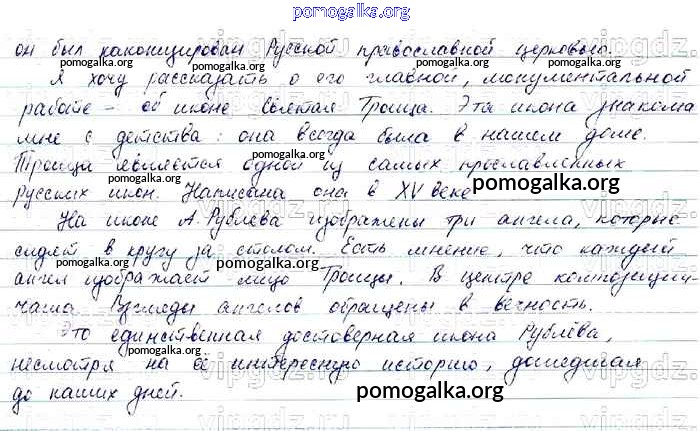 pomogalka.org
он был канонизирован Русской православной церковью.
Я хочу рассказать о его главной, монументальной
работе – об иконе Святая Троица. Эта икона знакома
мне с детства: она всегда была в нашем доме.
Троица является одной из самых прославленных
русских икон. Написана она в XV веке
pomogalka.org
На иконе А. Рублёва изображены три ангела, которые
сидят в кругу за столом. Есть мнение, что каждый
ангел изображает лицо Троицы. В центре композиции
чаша. Взгляды ангелов обращены в вечность.
Это единственная достоверная икона Рублёва,
несмотря на её интересную историю, дошедшая
до наших дней.
pomogalka.org